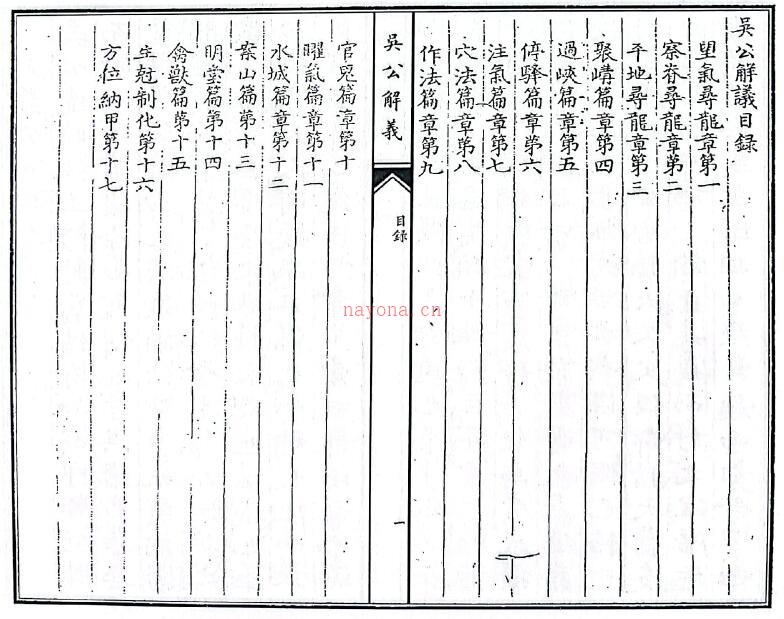 吳公解議目錄
望氣尋龍章第一
察脊尋龍章第二
平地尋龍章第三
聚講篇章第四
過峽篇章第五
停驛篇章第六
注氣篇章第七
穴法篇章第八
作法篇章第九
吳公解義
目錄
一
官鬼篇章第十
曜氣篇章第十一
水城篇章第十二
案山篇第十三
明堂篇第十四
禽獸篇第十五
生尅制化第十六
方位納甲第十七
nayona.cn